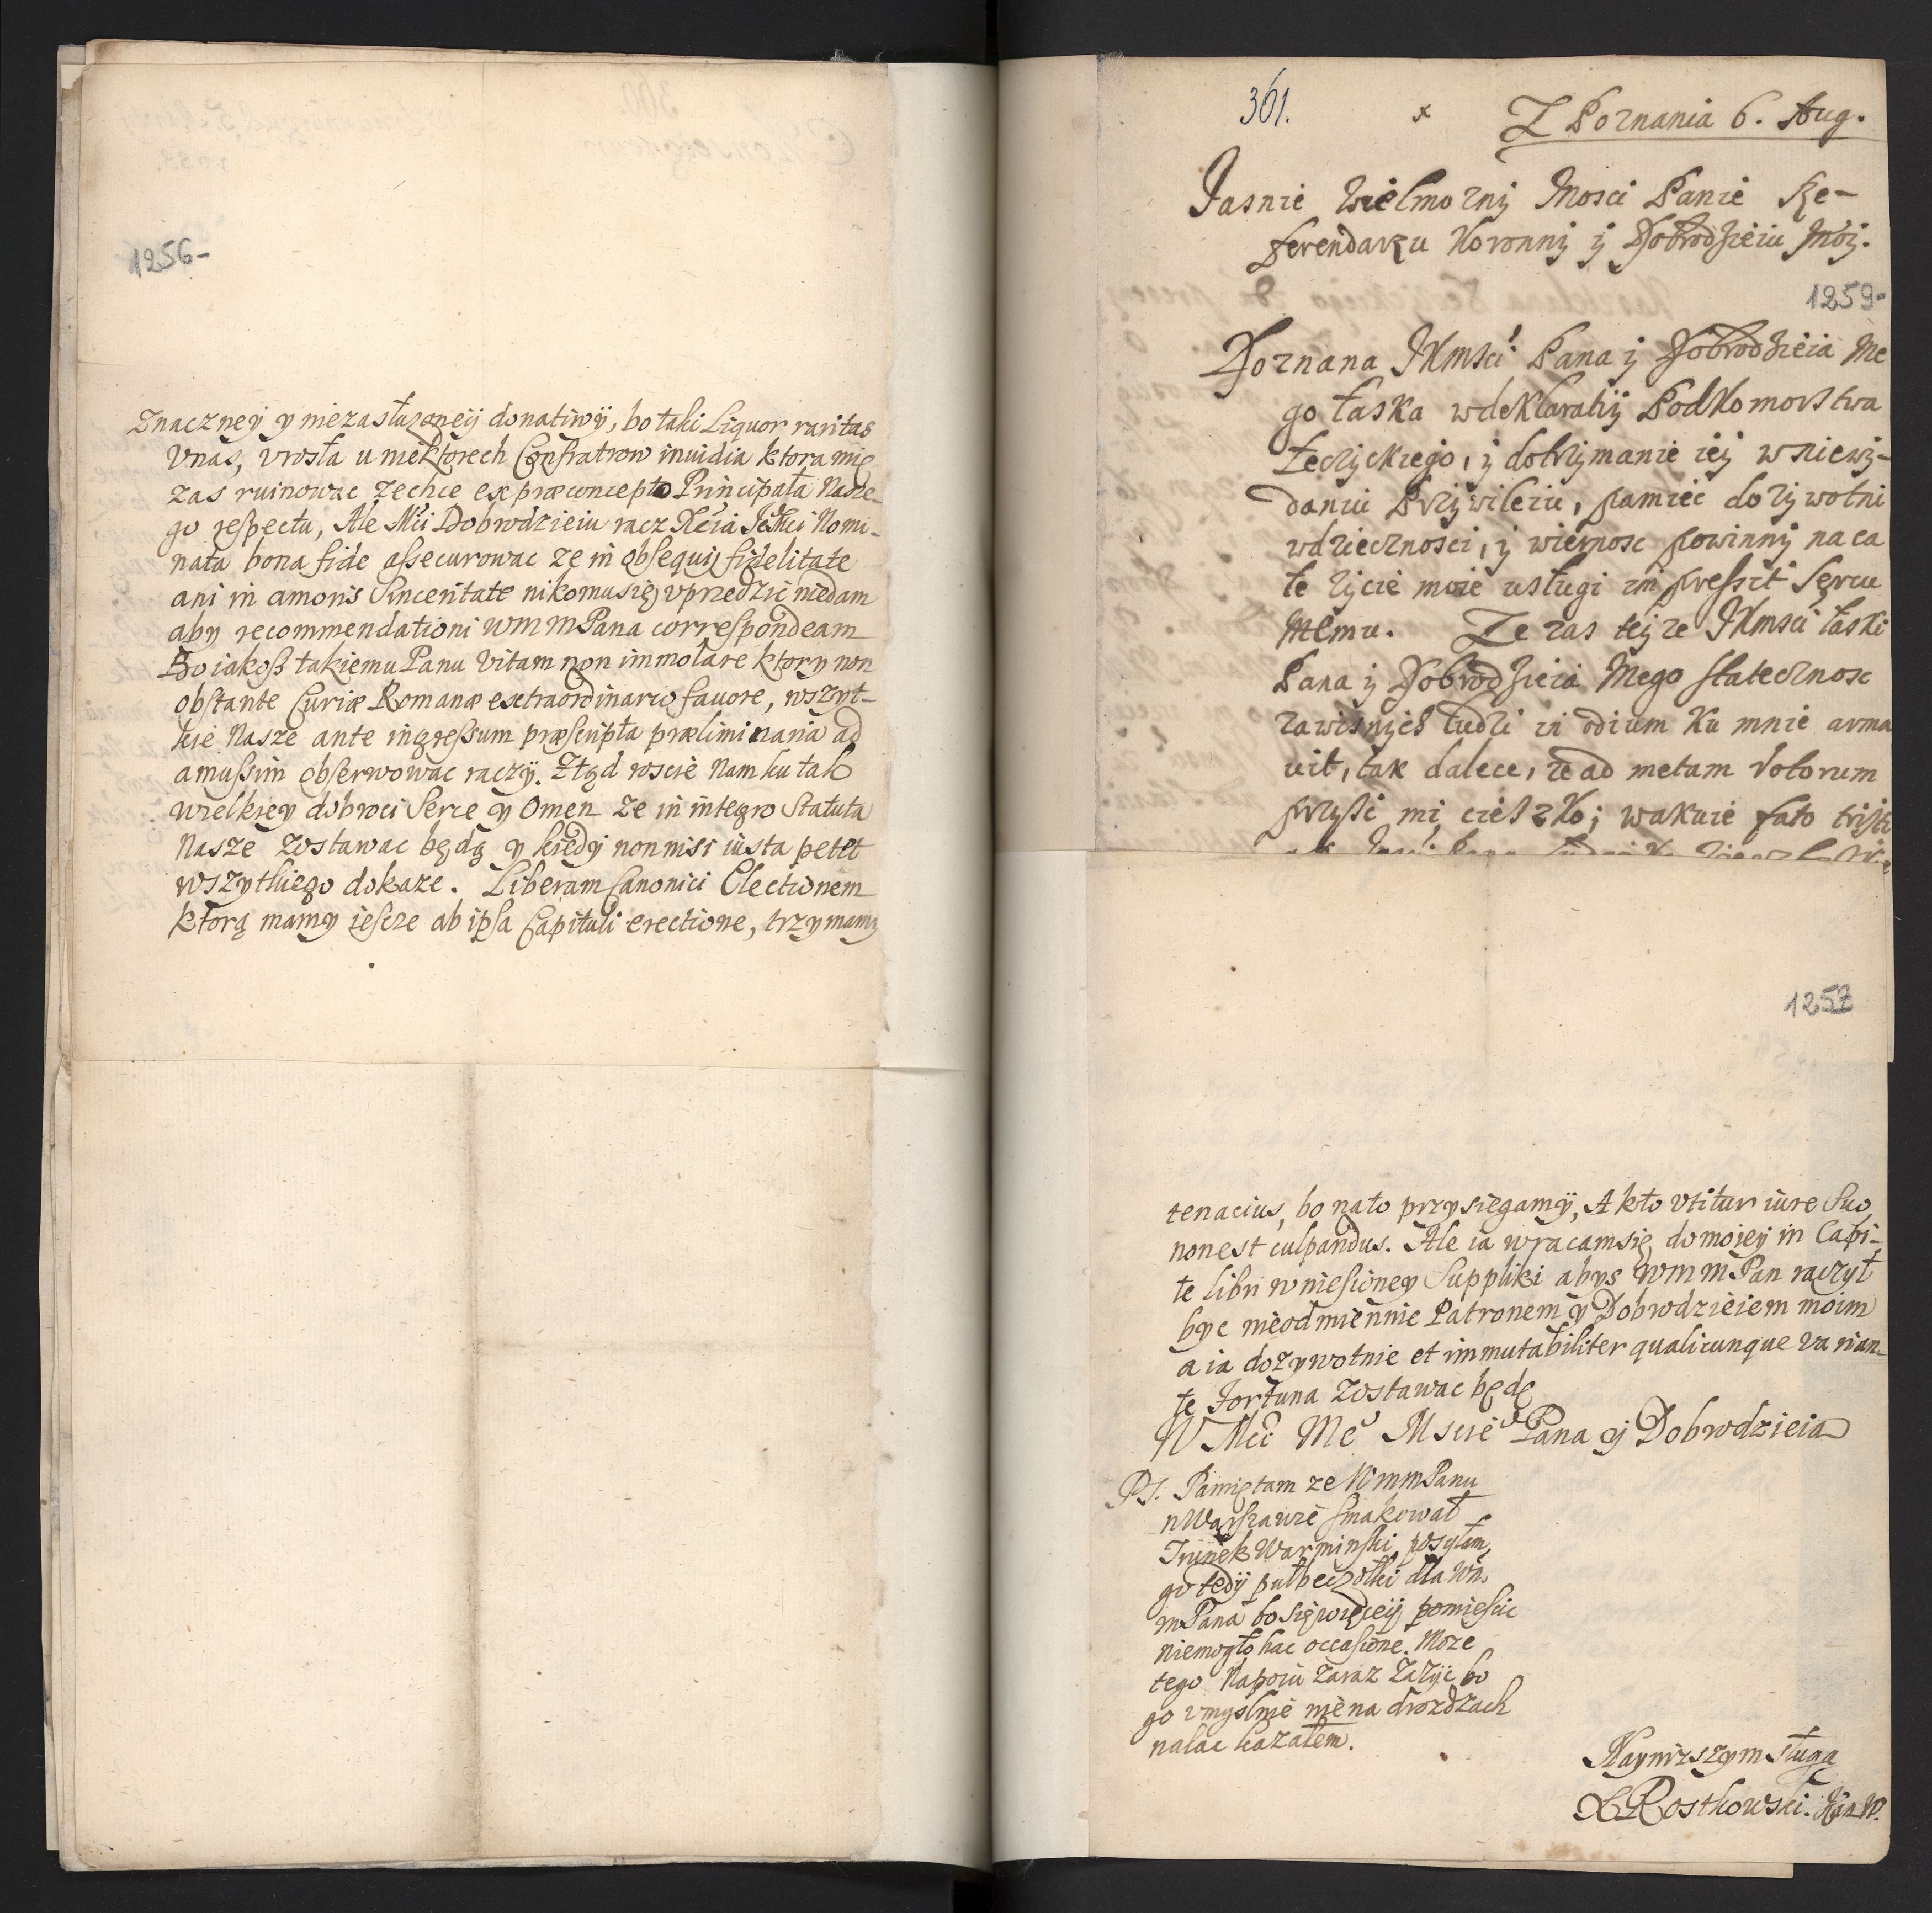 1256-
Znaczney y niezasłużoneÿ donatiwÿ, bo taki Liquor raritas
Vnas, vrosła u niektorech Confratrow inuidia ktora mię
zas ruinowac zechce ex præconcepto Principała Nasze-
go respectu, Ale Mći Dobrodzieiu racz Xćia Jeͦ Mći Nomi-
nata bona fide assecurowac ze in obsequij fidelitate
ani in amoris Sinceritate nikomu się vprzedzic niedam
aby recommendationi WmmPana correspondeam
Bo iakosz takiemu Panu Vitam non immolare ktory non
obstante Curiæ Romanæ extraordinario fauore, wszyt-
kie Nasze ante ingressum præscripta præliminaria ad
amussim obserwowac raczÿ. Ztąd roscie Nam ku tak
wielkiey dobroci Serce y Omen ze in integro Statuta
Nasze zostawac będą y kiedÿ non nisi iusta petet
wszytkiego dokaze. Liberam Canonici Electionem
ktorą mamy iescze ab ipsa Capituli erectione, trzymamy
361. x Z Poznania 6. Aug.
Jasnie Wielmoznij Mosci Panie Re-
ferendarzu Koronnij ij Dobrodzieiu Mój.
1259-
Doznana JKmsći Pana ij Dobrodzieia Me
go łaska w deklaratij Podkomorstwa
Łeczijckiego, ij dotrzijmanie ieij w
daniu Przijwileiu, pamiec dozijwotni
wdziecznosci, ij wiernosc powinnij na ca
łe zijcie moie usługi impressit Sercu
Memu. Ze zas teijze JKmsći łaski
Pana ij Dobrodzieia Mego statecznosc
zawisnijch ludzi in odium ku mnie arma
uit, tak dalece, ze ad metam Votorum
przijsc mi cieszko; wakuie fato tristi
1257
tenacius, bo nato przysięgamÿ, A kto vtitur iure Suo
non est culpandus. Ale ia wracam się do moiey in Capi-
te libri wniesioney Suppliki abys WmmPan raczył
byc nieodmiennie Patronem y Dobrodzieiem moim
a ia dozywotnie et immutabiliter qualicunque varian-
te Fortuna zostawac będę
W Mći Mͦ Msćieͦ Pana y Dobrodzieia
PS. Pamiętam ze WmmPanu
w Warszawie smakował
Trunek Warminski, posyłam
go tedÿ puł beczółki dla Wm
mPana bo się więceÿ pomiescic
niemogło hac occasione. Moze
tego Napoiu zaraz zazÿc bo
go vmyslnie nie na drozdzach
nalac kazałem.
Naynizszym sługą
X Rostkowski. Kan W.